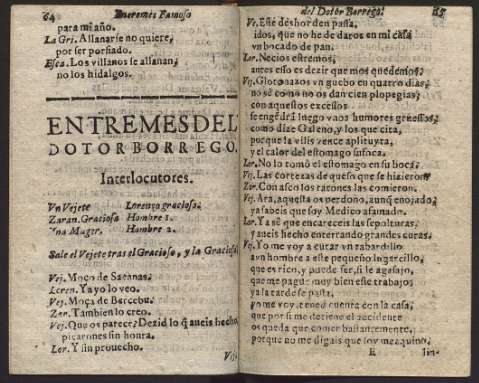 64 Entremes Famoso
para mi año.
La Gri. Allanarse no quiere,
por ser porfiado.
Esca. Los villanos se allanan,
no los hidalgos.
ENTREMES DEL
DOTOR BORREGO.
Interlocutores.
Vn Vejete Lorenço gracioso.
Zaran. Graciosa Hombre 1.
Vna Muger. Hombre 2.
Sale el Vejete tras el Gracioso, y la Graciosa
Vej. Moço de Satanas.
Loren. Ya yo lo veo.
Vej. Moça de Bercebu.
Zar. Tambien lo creo.
Vej. Que os parece? Dezid lo q̃ aueis hecho
picarones sin honra.
Lor. Y sin prouecho.
Vej.
del Dotor Borrego.
Ve. Esse deshorden passa,
idos, que no he de daros en mi casa
vn bocado de pan.
Lor. Necios estremos,
antes esso es dezir que mos quedemos;
Vej. Glotonazos vn guebo en quatro dias,
no sè como no os dan cien plopegias;
con aquestos excessos
se engedra luego vnos humores gruessos,
como dize Galeno, y los que cita,
porque la vilis vence apliuyta,
y el calor del estomago sufoca.
Lor. No lo tomò el estomago en su boca;
Vej. Las cortezas de queso que se hizieron
Zar. Con asco los ratones las comieron.
Vej. Ara, aquesta os perdono, aunq̃ enojado,
ya sabeis que soy Medico afamado.
Lor. Ya sè que encareceis las sepolturas,
y aueis hecho enterrando grandes curas.
Vej. Yo me voy a curar vn tabardillo
a vn hombre a esse pequeño lugarcillo,
que es rico, y puede ser, si le agasajo,
que me pague muy bien este trabajo
ya la tarde se passa,
yo me voy, tened cuenta con la casa,
que por si me detiene el accidente
os queda que comer bastantemente,
porque no me digais que soy mezquino,
E